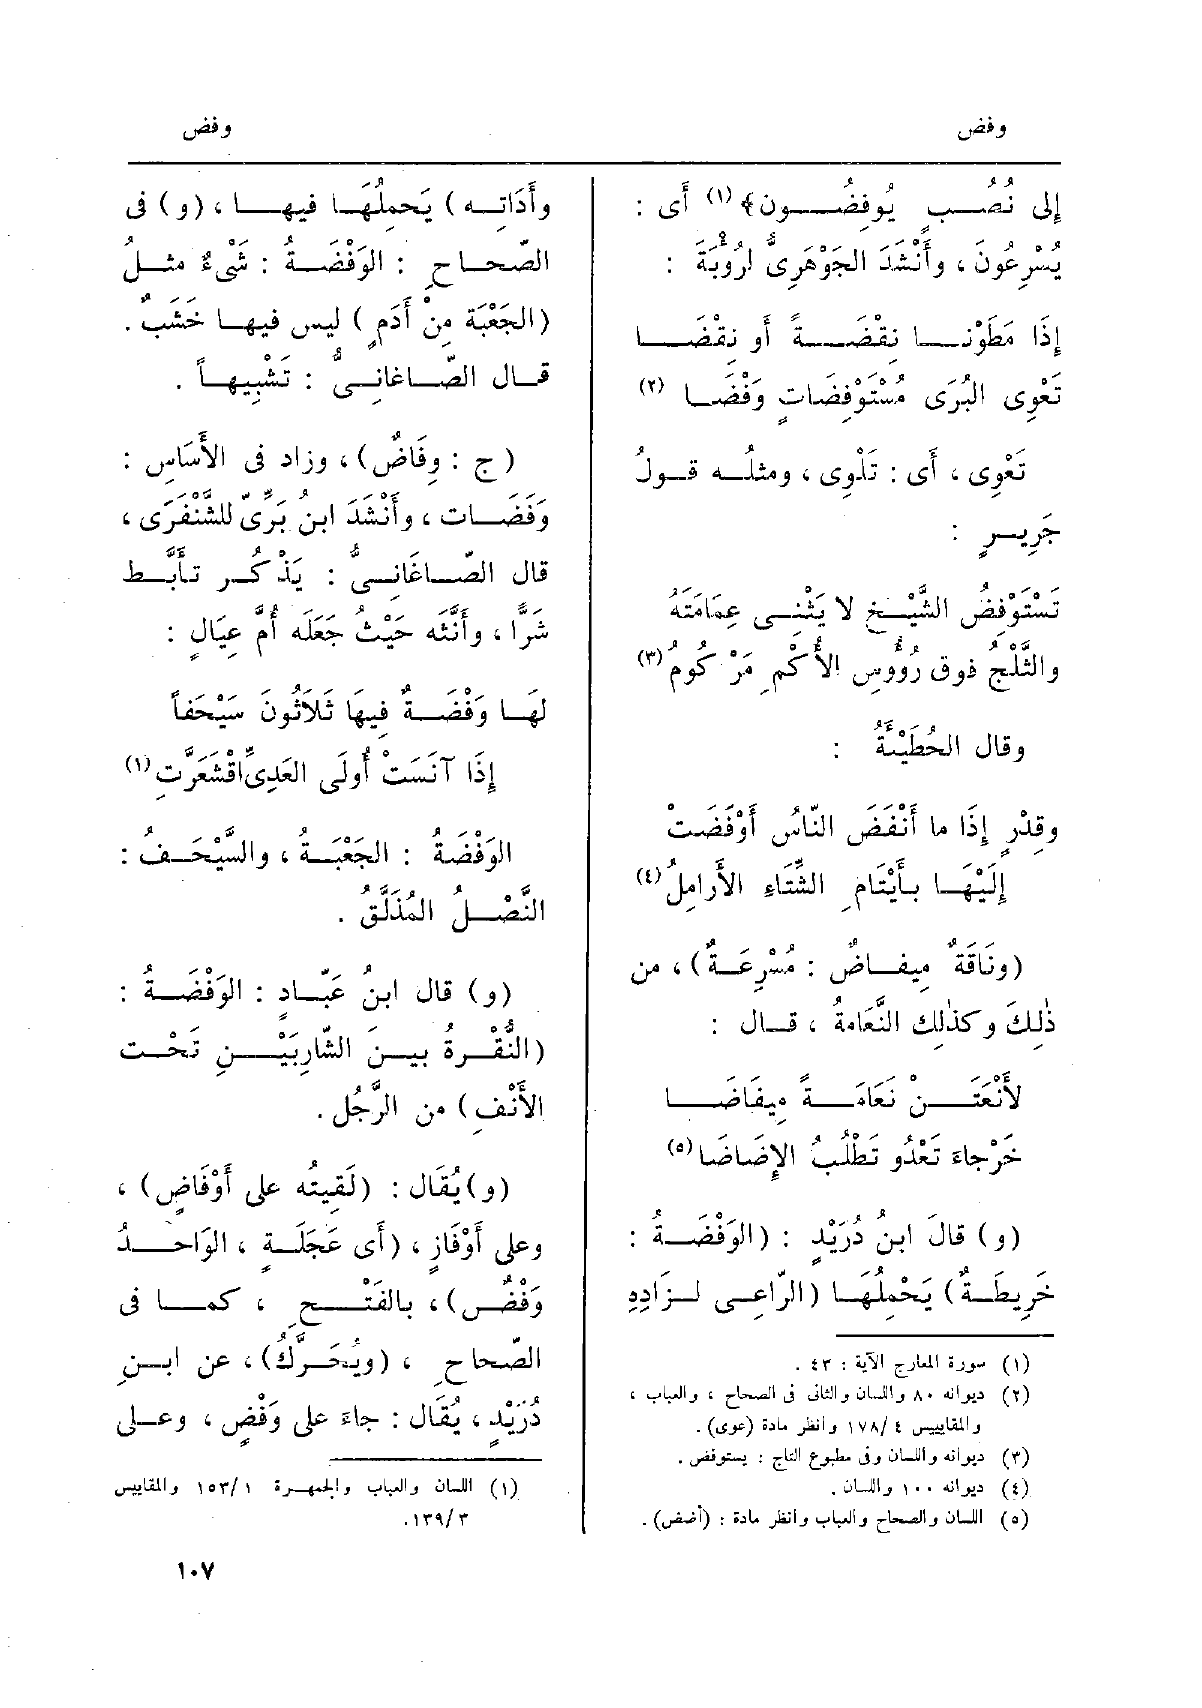 وفض
وفض
إلى نُصُبٍ يُوفِضُون﴾(١) أَى :
يُسْرِعُونَ ، وأَنْشَدَ الجَوْهَرِىُّ لرُؤْبَةَ :
إِذَا مَطَوْنَا نِقْضَةً أَو نِقْضَا
تَعْوِى البُرَى مُسْتَوْفِضَاتٍ وَفْضَا (٢)
تَعْوِى ، أَى : تَلْوِى ، ومثلُه قولُ
جَرِيرٍ :
تَسْتَوْفِضُ الشَّيْخَ لا يَثْنِى عِمَامَتَهُ
والثَّلْجُ فوق رُؤُوسِ الأُكْمِ مَرْكُومُ(٣)
وقال الحُطَيْئَةُ :
وقِدْرٍ إِذَا ما أَنْفَضَ النّاسُ أَوْفَضَتْ
إِلَيْهَا بأَيْتَامِ الشِّتَاءِ الأَرامِلُ(٤)
(ونَاقَةٌ مِيفَاضٌ : مُسْرِعَةٌ) ، من
ذٰلِكَ وكذٰلِك النَّعَامَةُ ، قال :
لأَنْعَتَنْ نَعَامَةً مِيفَاضَا
خَرْجاءَ تَعْدُو تَطْلُبُ الإِضَاضَا(٥)
(و) قَالَ ابنُ دُرَيْدٍ : (الوَفْضَةُ :
خَرِيطَةٌ) يَحْمِلُهَا (الرّاعِى لزَادِهِ
(١) سورة المعارج الآية : ٤٣ .
(٢) ديوانه ٨٠ واللسان والثانى فى الصحاح ، والعباب ،
والمقاييس ١٧٨/٤ وانظر مادة (عوى) .
(٣) ديوانه واللسان وفى مطبوع التاج : يستوفض .
(٤) ديوانه ١٠٠ واللسان .
(٥) اللسان والصحاح والعباب وانظر مادة : (أضض) .
وأَدَاتِه) يَحمِلُهَا فيها ، (و) فى
الصّحاحِ : الوَفْضَةُ : شَىْءٌ مثلُ
(الجَعْبَة مِنْ أَدَمٍ) ليس فيها خَشَبٌ .
قال الصّاغانِىُّ : تَشْبِيهاً .
(ج : وِفَاضٌ) ، وزاد فى الأَسَاسِ :
وَفَضَات ، وأَنْشَدَ ابنُ بَرِّىّ للشَّنْفَرَى ،
قال الصّاغَانِىُّ : يَذْكُر تأَبَّط
شَرًّا ، وأَنَّثه حَيْثُ جَعَلَه أُمَّ عِيَالٍ :
لهَا وَفْضَةٌ فِيهَا ثَلاَثُونَ سَيْحَفاً
إِذَا آنَسَتْ أُولَى العَدِىِّ اقْشَعَرَّتِ(١)
الوَفْضَةُ : الجَعْبَةُ ، والسَّيْحَفُ :
النَّصْلُ المُذَلَّقُ .
(و) قال ابنُ عَبّادٍ : الوَفْضَةُ :
(النُّقْرةُ بينَ الشّارِبَيْنِ تَحْت
الأَنْفِ) من الرَّجُل .
(و)يُقَال : (لَقِيتُه على أَوْفَاضٍ) ،
وعلى أَوْفَازٍ ، (أَى عَجَلَةٍ ، الوَاحدُ
وَفْضٌ) ، بالفَتْحِ ، كما فى
الصّحاحِ ، (ويُحَرَّكُ) ، عن ابنِ
دُرَيْدٍ ، يُقَال : جاءَ على وَفْضٍ ، وعلى
(١) اللسان والعباب والجمهرة ١٥٣/١ والمقاييس
١٣٩/٣.
١٠٧